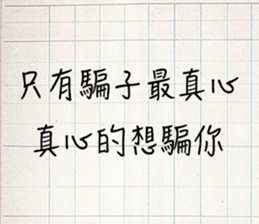 只有騙子最真心
真心的想騙你